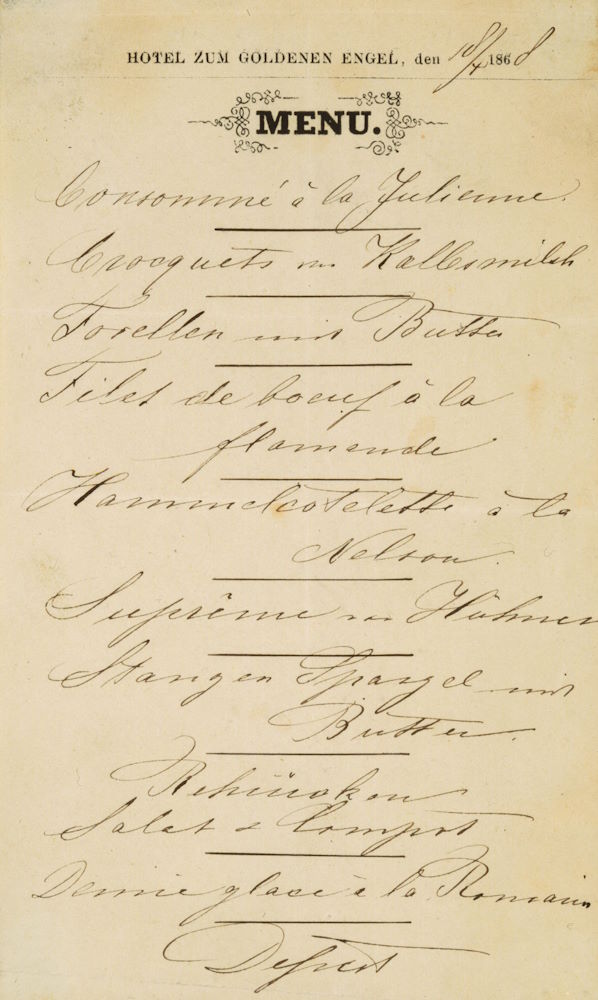 HOTEL ZUM GOLDENEN ENGEL, den 18/4 1868
MENU.
Consommé à la Julienne.
Crocquets von Kalbsmilch
Forellen mit Butter
Filet de boeuf à la
flamande
Hammelcotelette à la
Nelson.
Suprême von Hühner
Stangen Spargel mit
Butter.
Rehrücken
Salat & Compot
Demie glace à la Romain
Dessert